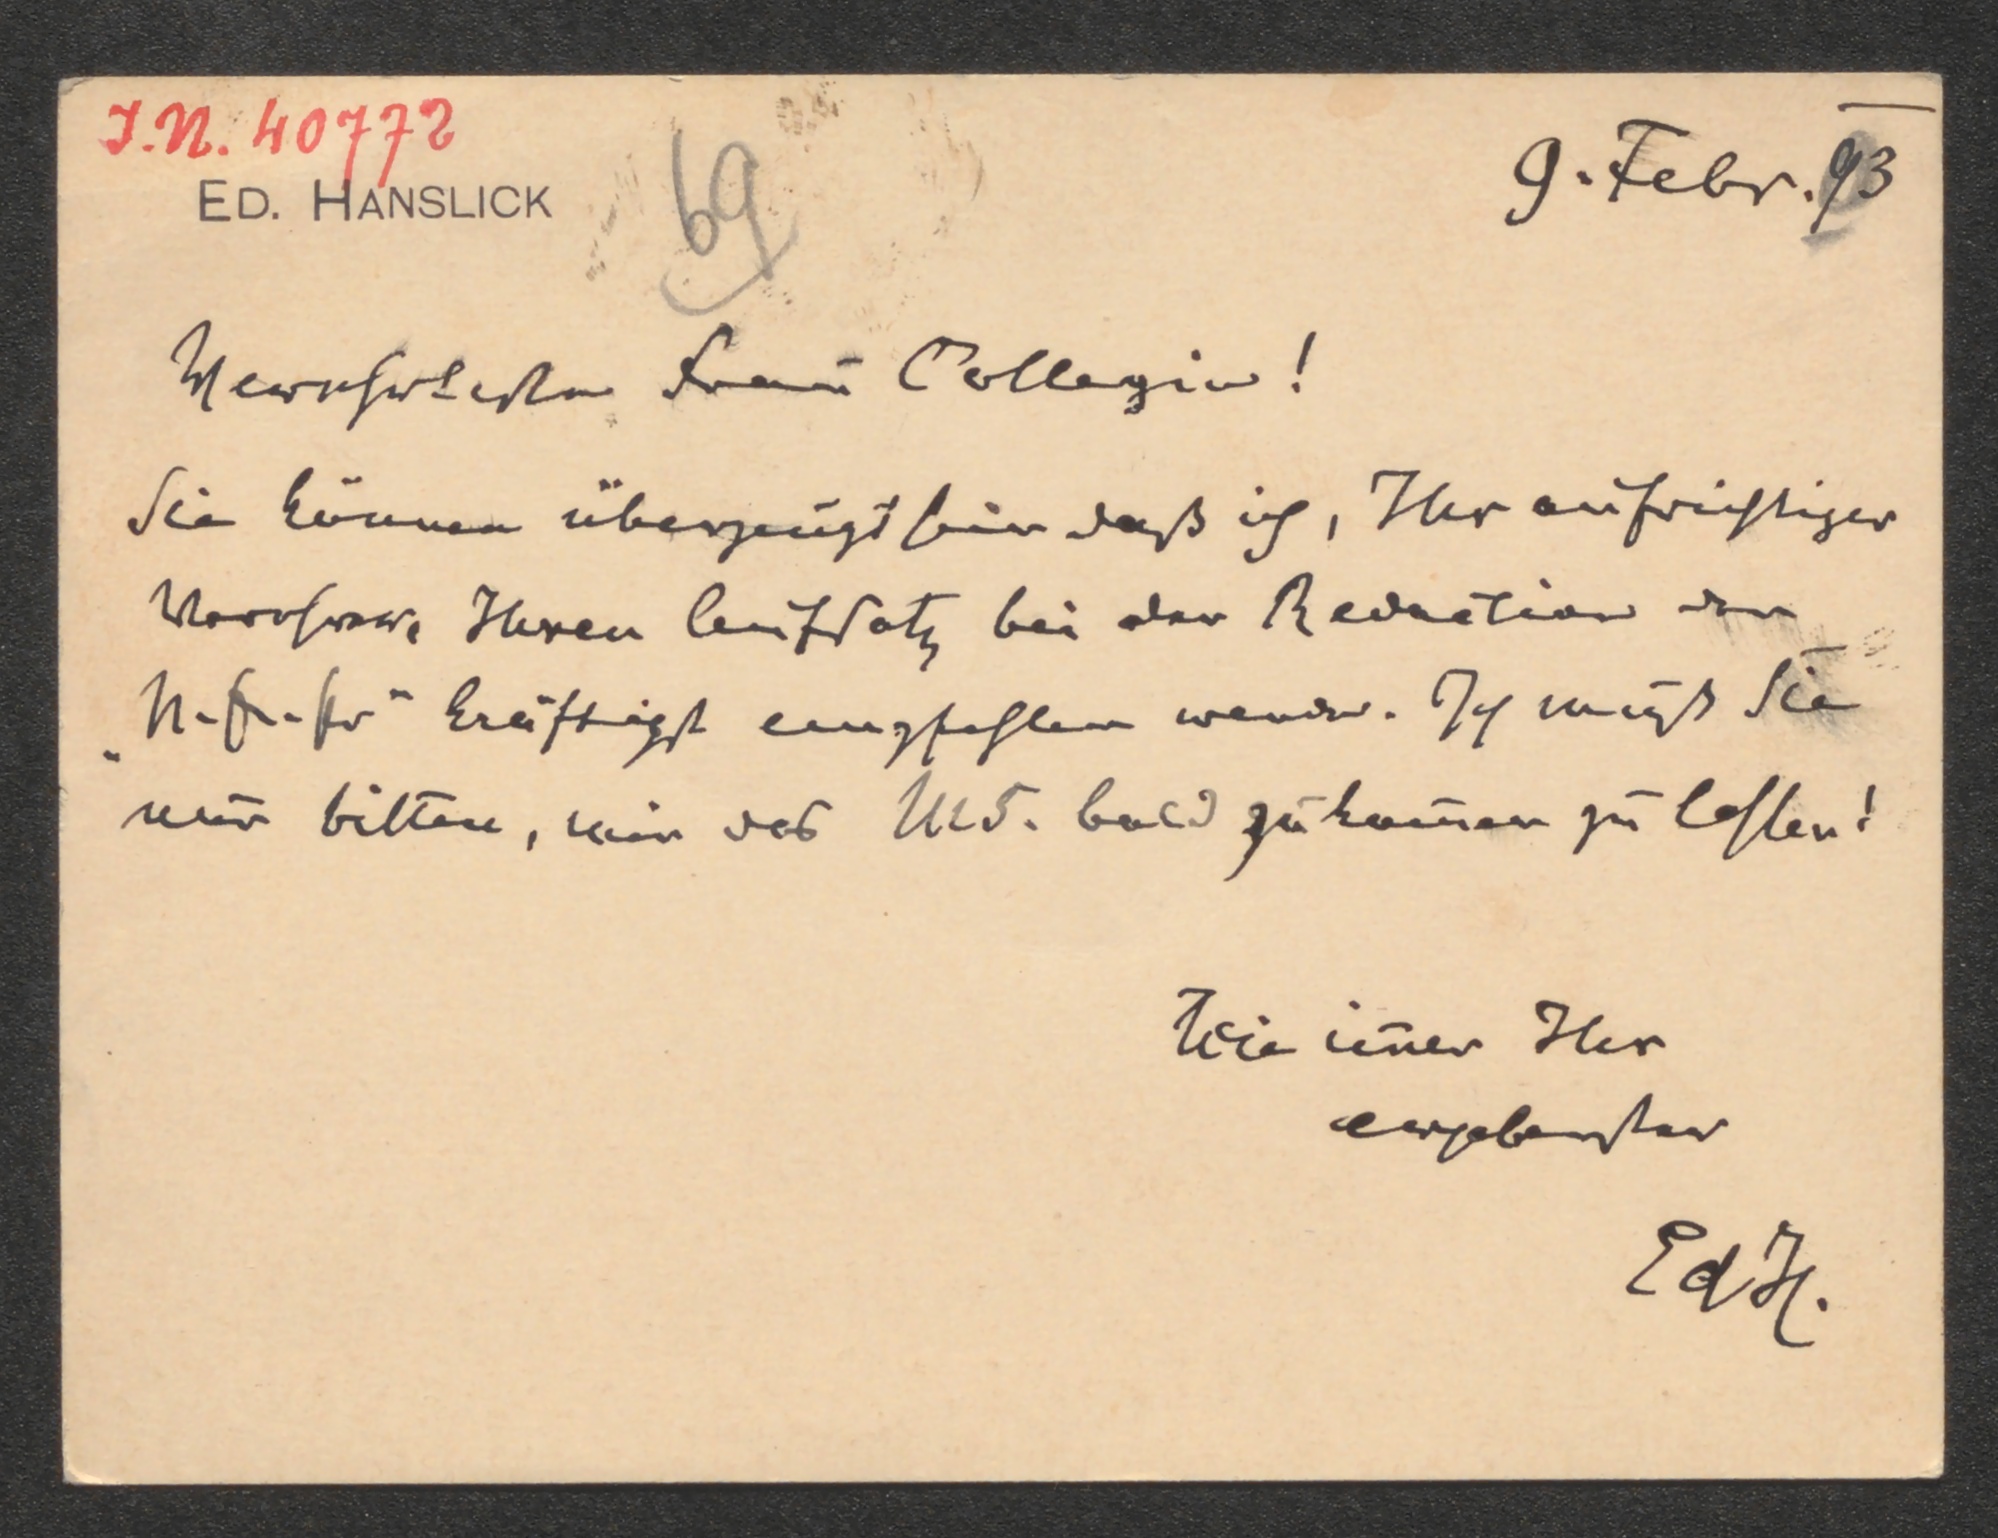 I.N. 40772
ED. HANSLICK
69
9. Febr. 93
Verehrteste Frau Collegin!
Sie können überzeugt sein daß ich, Ihr aufrichtiger
Verehrer, Ihren Aufsatz bei der Redaction der
„N. fr. Pr“ kräftigst empfehlen werde. Ich muß Sie
nur bitten, mir das MS. bald zukom̅en zu lassen!
Wie im̅er Ihr
ergebenster
EdH.